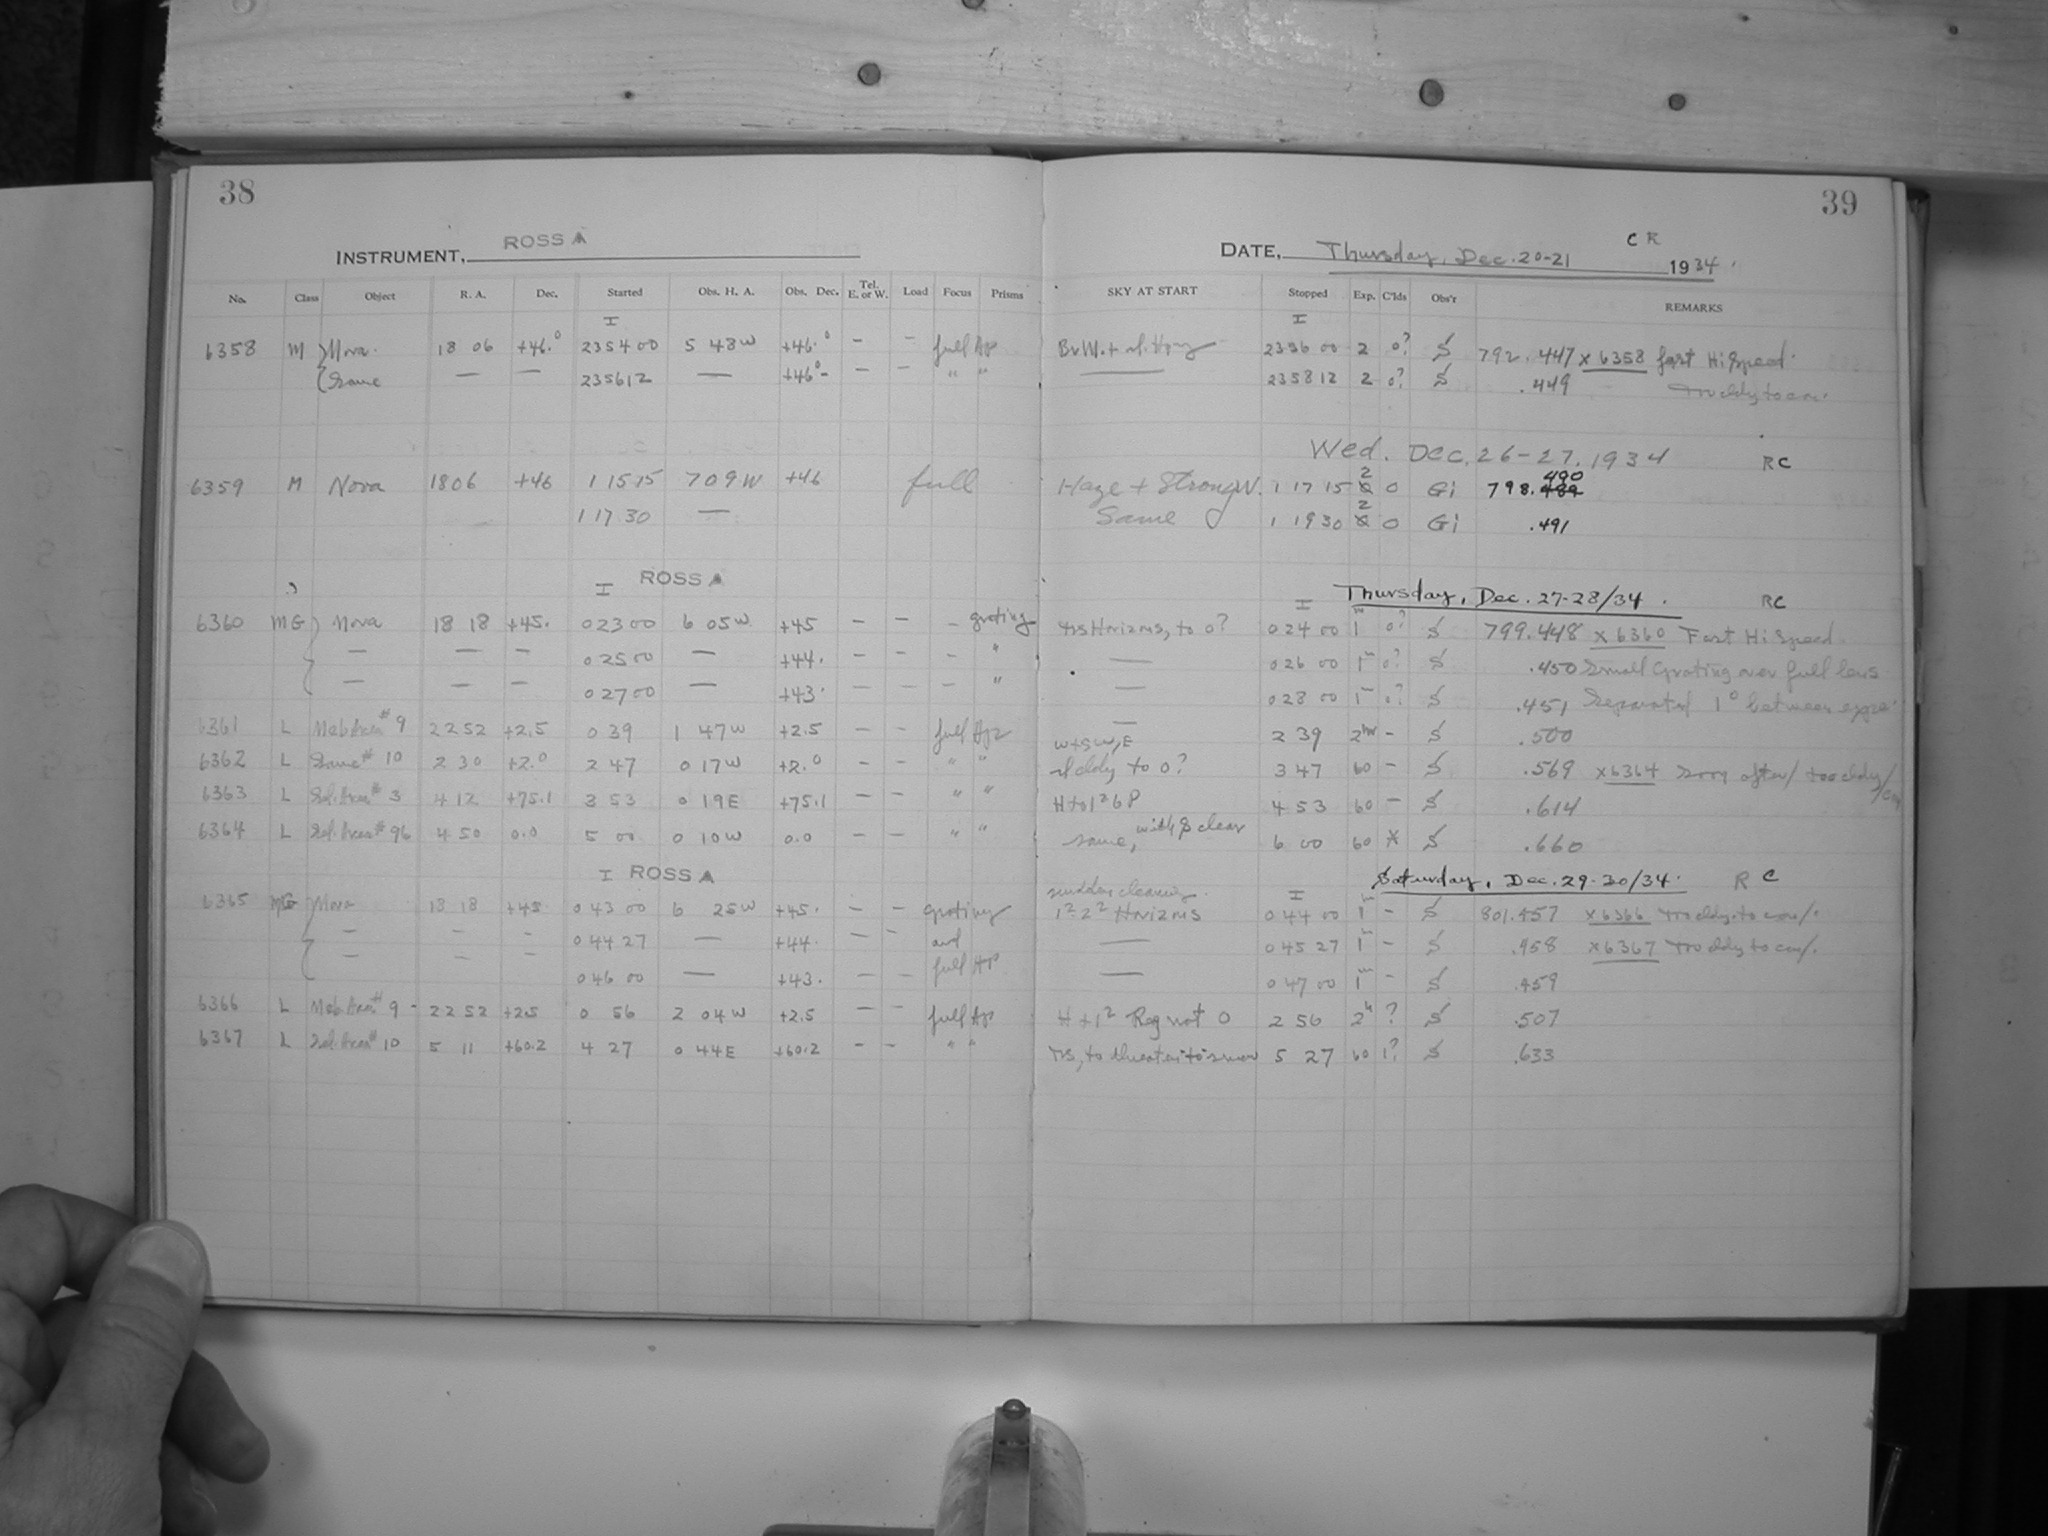 38
39
INSTRUMENT, ROSS A
DATE, Thursday, Dec. 20-21 1934. C R
No. Class Object R. A. Dec. Started Obs. H. A. Obs. Dec. Tel. E. or W. Load Focus Prisms SKY AT START Stopped Exp. C'lds Obs'r REMARKS
I I
6358 M Nova. 18 06 +46.0 23 54 00 5 48 W +46.0 — — full Ap 23 56 00 2 0? S 792.447 x 6358 fast Hi Speed
Same — — 23 56 12 — +46.0 — — " " — 23 58 12 2 0? S .449
Wed. Dec. 26-27. 1934 RC
6359 M Nova 1806 +46 1 15 15 7 09 W +46 full Haze + Strong W. 1 17 15 2 0 Gi 798.490
1 17 30 — Same 1 19 30 2 0 Gi .491
I ROSS A I Thursday, Dec. 27-28/34. RC
6360 MG Nova 18 18 +45. 0 23 00 6 05 W +45 — — — grating Horizons, to 0? 0 24 00 1m 0? S 799.448 x 6360 Fast Hi Speed
— — — 0 25 00 — +44. — — — " — 0 26 00 1m 0? S .450 Small Grating over full lens
— — — 0 27 00 — +43. — — — " — 0 28 00 1m 0? S .451 Separated 1° between expo
6361 L 9 22 52 +2.5 0 39 1 47 W +2.5 — — full Ap W+SW, E 2 39 2hr — S .500
6362 L Same # 10 2 30 +2.0 2 47 0 17 W +2.0 — — " " cldy to 0? 3 47 60 — S .569 x 6364
6363 L Sel. Area # 3 4 12 +75.1 3 53 0 19 E +75.1 — — " " 4 53 60 — S .614
6364 L Sel. Area # 96 4 50 0.0 5 00 0 10 W 0.0 — — " " same, clear 6 00 60 S .660
I ROSS A I Saturday, Dec. 29-30/34. R C
6365 MG Nova 18 18 +45 0 43 00 6 25 W +45. — — grating 1²-2² Horizons 0 44 00 1m — S 801.457 x 6366
— — — 0 44 27 — +44. — — and — 0 45 27 1m — S .458 x 6367
— — — 0 46 00 — +43. — — full Ap — 0 47 00 1m — S .459
6366 L 9 22 52 +2.5 0 56 2 04 W +2.5 — — full Ap H + 1² Reg not 0 2 56 2h ? S .507
6367 L Sel. Area # 10 5 11 +60.2 4 27 0 44 E +60.2 — — " " 5 27 60 1? S .633